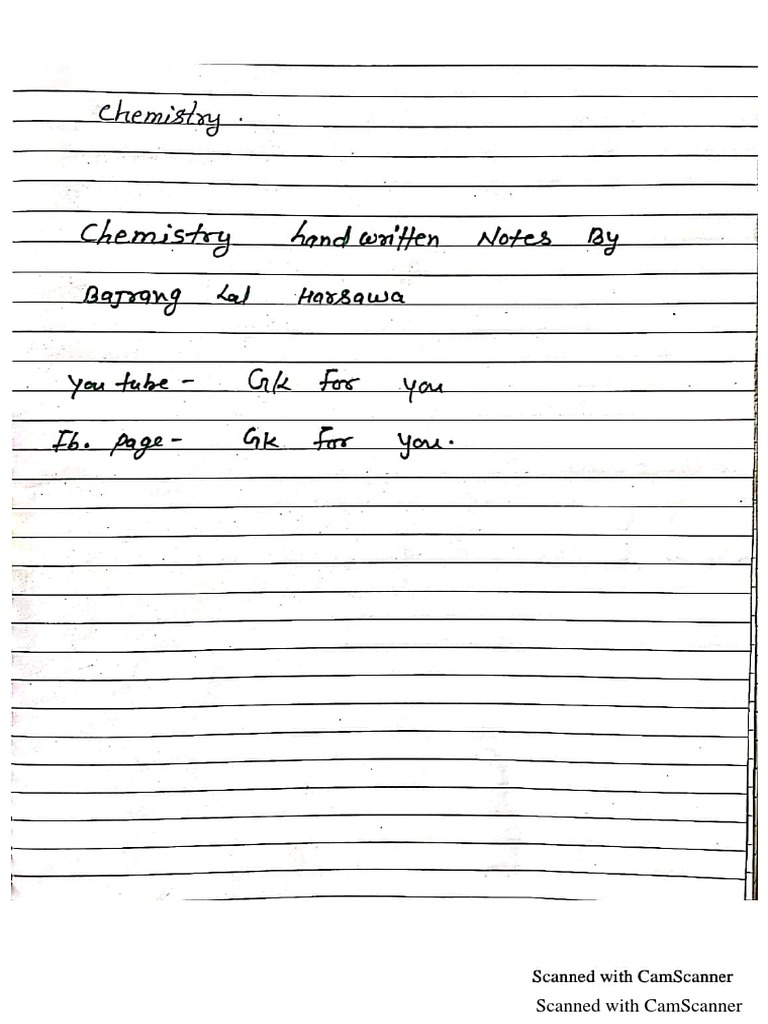 Chemistry.
Chemistry handwritten Notes By
Bajrang Lal Harsawa
You tube - Gk For you
Fb. page - Gk For you.
Scanned with CamScanner
Scanned with CamScanner